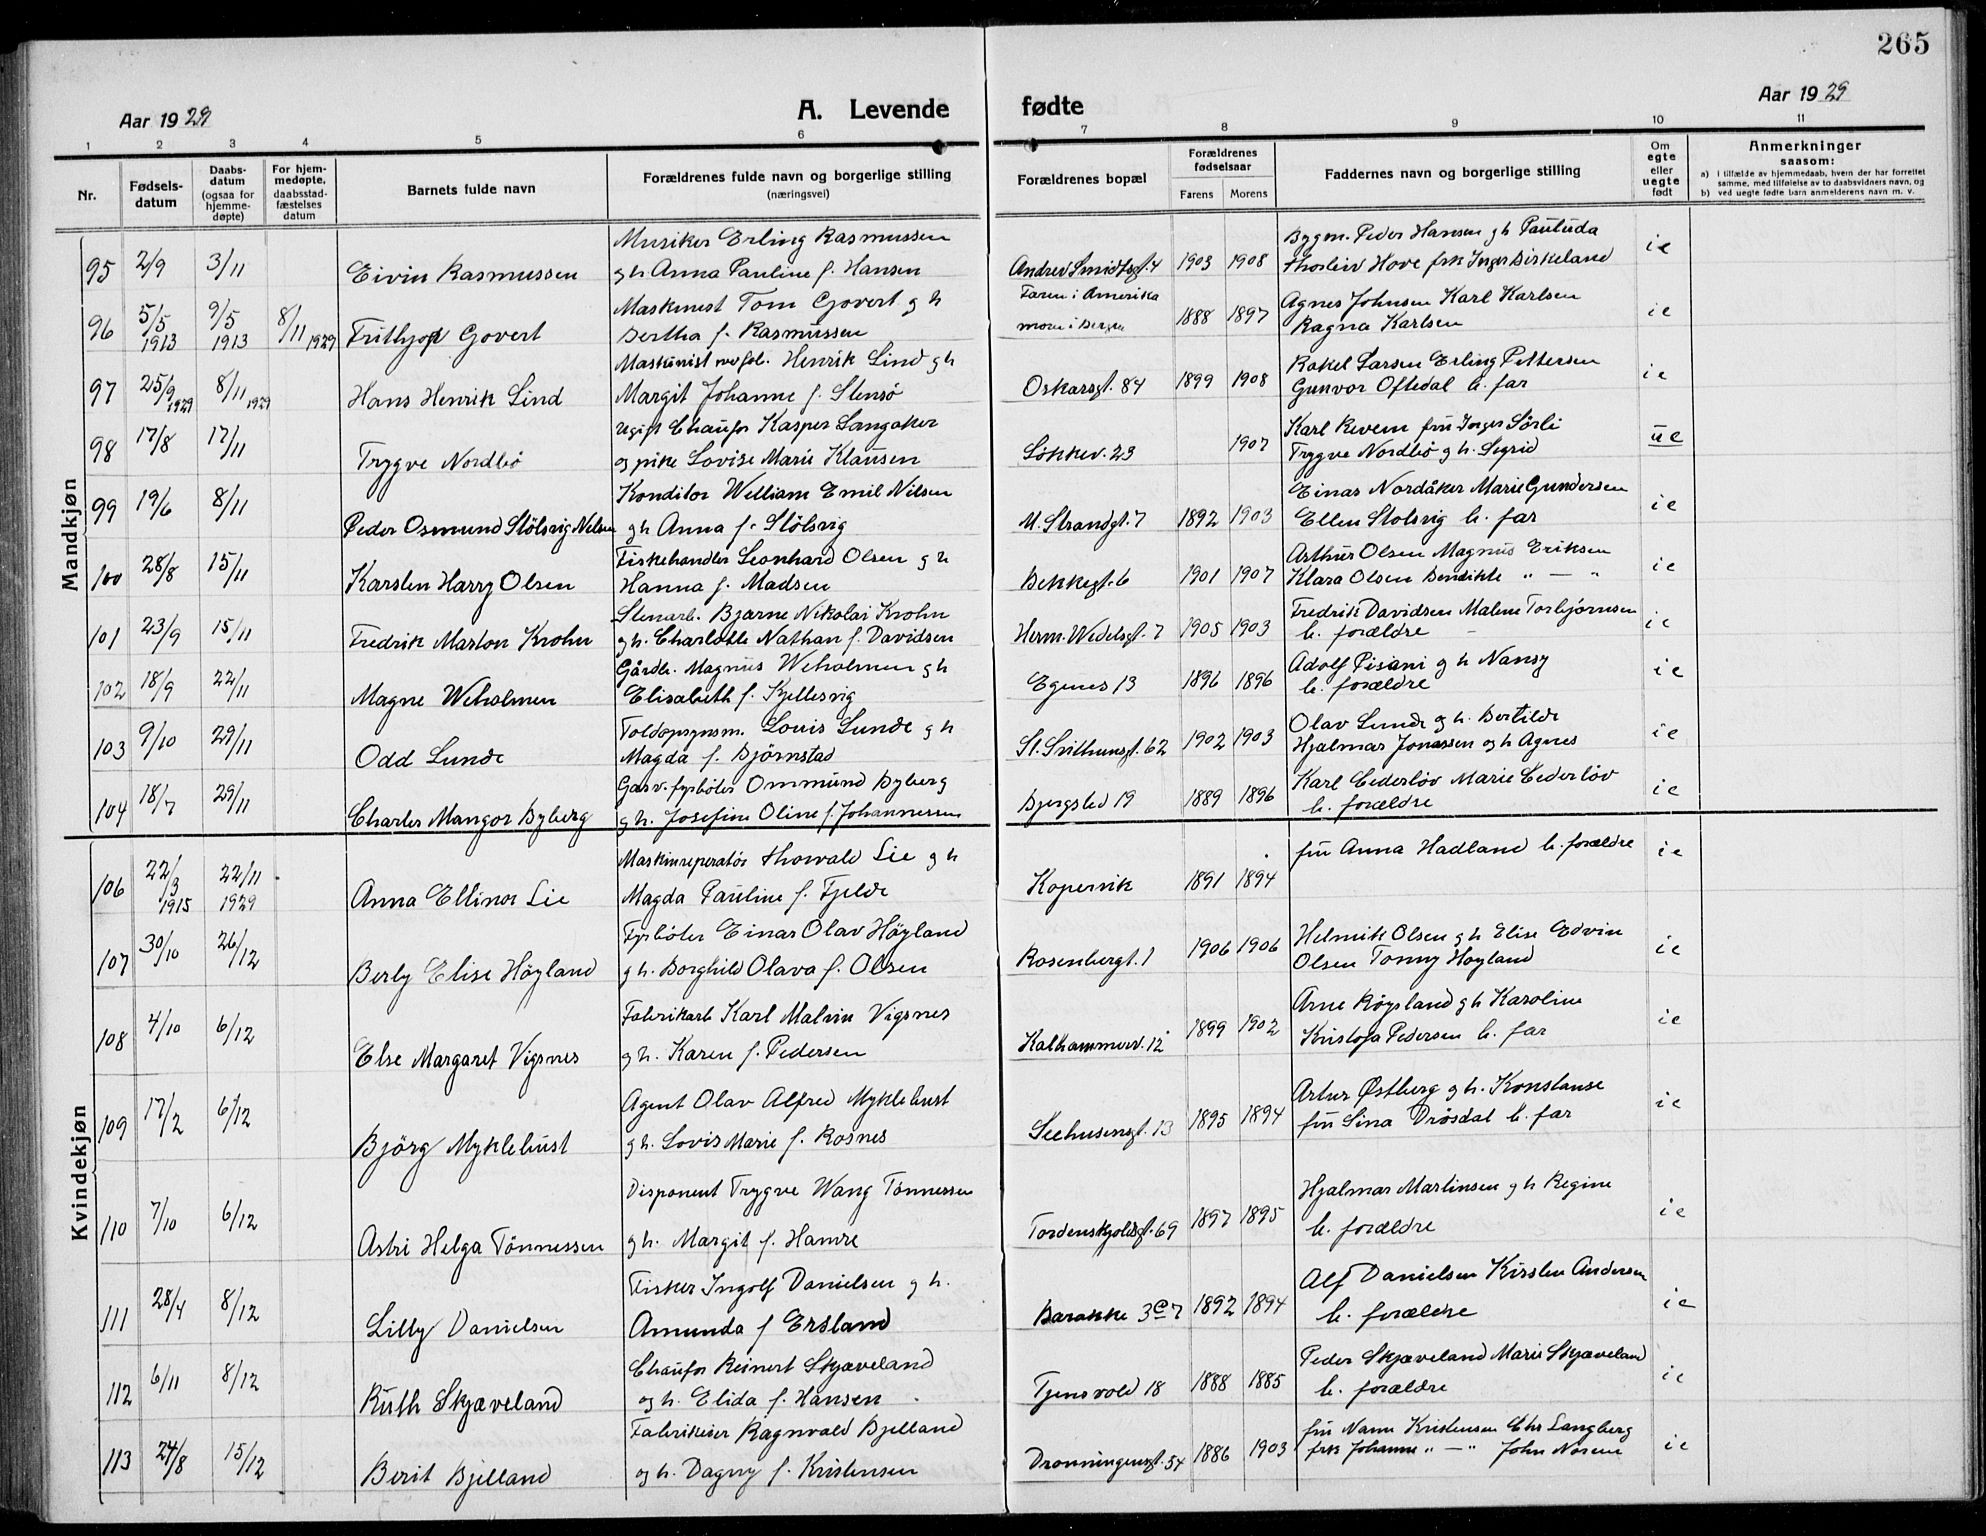 265
Aar 1929
A. Levende fødte
Aar 1929
1 2 3 4 5 6 7 8 9 10 11
Nr.
Fødsels-
datum
Daabs-
datum
(ogsaa for
hjemme-
døpte)
For hjem-
medøpte,
daabsstad-
fæstelses
datum
Barnets fulde navn
Forældrenes fulde navn og borgerlige stilling
(næringsvei)
Forældrenes bopæl
Forældrenes
fødselsaar
Farens Morens
Faddernes navn og borgerlige stilling
Om
egte
eller
uegte
født
Anmerkninger
saasom:
a) i tilfælde av hjemmedaab, hvem der har forrettet
samme, med tilføielse av to daabsvidners navn, og
b) ved uegte fødte barn anmelderens navn m. v.
Mandkjøn
Musiker Erling Rasmussen Bygm. Peder Hansen gh Pauluda
95 2/9 3/11 Eivin Rasmussen gh Anna Pauline f. Hansen Andrev Smidtsgt. 4 1903 1908 Thorleiv Hove frk Inger Birkeland ie
Maskinest Tom Govert gh Faren i Amerika Agnes Johnsen Karl Karlsen
96 5/5 1913 9/5 1913 8/11 1929 Frithjof Govert Bertha f. Rasmussen moren i Bergen 1888 1897 Ragna Karlsen ie
Maskinist Henrik Lind gh Rakel Larsen Erling Pettersen
97 25/9 1929 8/11 1929 Hans Henrik Lind Margit Johanne f. Stensø Oskarsgt. 84 1899 1908 Gunvor Oftedal b. far ie
ugift Chaufør Kasper Langaker Karl Revem frü Inger Sörli
98 17/8 17/11 Trygve Nordbö og pike Lovise Marie Klausen Lökkev. 23 1907 Trygve Nordbö gh. Sigrid ue
Konditor William Emil Nilsen Einar Nordåker Marie Gundersen
99 19/6 8/11 Peder Osmund Stölsvig Nilsen gh Anna f. Stölsvig N. Strandgt. 7 1892 1903 Ellen Stolsvig b. far ie
Fiskehandler Leonhard Olsen gh Arthur Olsen Magnus Eriksen
100 28/8 15/11 Karsten Harry Olsen Hanna f. Madsen Bekkegt. 6 1901 1907 Klara Olsen Bendikte " — " ie
Stenarb. Bjarne Nikolai Krohn Fredrik Davidsen Malene Torbjörnsen
101 23/9 15/11 Fredrik Marton Krohn gh. Charlotte Nathan f. Davidsen Herm. Wedelsgt. 7 1905 1903 b. forældre ie
Gårdb. Magnus Weholmen gh Adolf Pisani gh Nansy
102 18/9 22/11 Magne Weholmen Elisabeth f. Kjellesvig Egenes 13 1896 1896 b. forældre ie
Toldopsynsm. Louis Lunde gh Olav Lunde gh. Bertilde
103 9/10 29/11 Odd Lunde Magda f. Björnstad St. Svithunsgt. 62 1902 1903 Hjalmar Jonassen og h Agnes ie
Gasv. fyrböter Ommund Byberg Karl Cederlöv Marie Cederlöv
104 18/7 29/11 Charles Mangor Byberg gh. Josefine Oline f. Johannessen Bjergsted 19 1889 1896 b. forældre ie
Kvindekjøn
Maskinreperatör Thorvald Lie gh frü Anna Hadland b. forældre
106 22/3 1915 22/11 1929 Anna Ellinor Lie Magda Pauline f. Fjelde Kopervik 1891 1894 ie
Fyrböter Einar Olav Höyland Helmik Olsen gh Elise Edvin
107 30/10 26/12 Berly Elise Höyland gh. Borghild Olava f. Olsen Rosenbergt. 1 1906 1906 Olsen Tonny Høyland ie
Fabrikarb Karl Malvin Vigsnes Arne Röysland gh Karoline
108 4/10 6/12 Else Margaret Vigsnes gh. Karen f. Pedersen Kalhammerv. 12 1899 1902 Kristofa Pedersen b. far ie
Agent Olav Alfred Myklebust Artur Østberg gh. Konstanse
109 17/2 6/12 Björg Myklebust gh. Lovis Marie f. Rosnes Seehusensgt. 13 1895 1894 frü Lina Drösdal b. far ie
Disponent Trygve Wang Tönnessen Hjalmar Martinsen gh Regine
110 7/10 6/12 Astri Helga Tönnessen gh. Margit f. Hamre Tordenskjoldsgt. 69 1897 1895 b. forældre ie
Fisker Ingolf Danielsen gh. Alf Danielsen Kirsten Andersen
111 28/4 8/12 Lilly Danielsen Amunda f Ersland Barakke 3 C 7 1892 1894 b. forældre ie
Chaufør Reinert Skjæveland Peder Skjæveland Marie Skjæveland
112 6/11 8/12 Ruth Skjæveland og h. Elida f. Hansen Tjensvold 18 1888 1885 b. forældre ie
Fabrikeier Ragnvald Bjelland frü Nann Kristensen Chr Langberg
113 24/8 15/12 Berit Bjelland og h. Dagny f. Kristensen Dronningensgt. 54 1886 1903 frk Johanne " — " John Norem ie